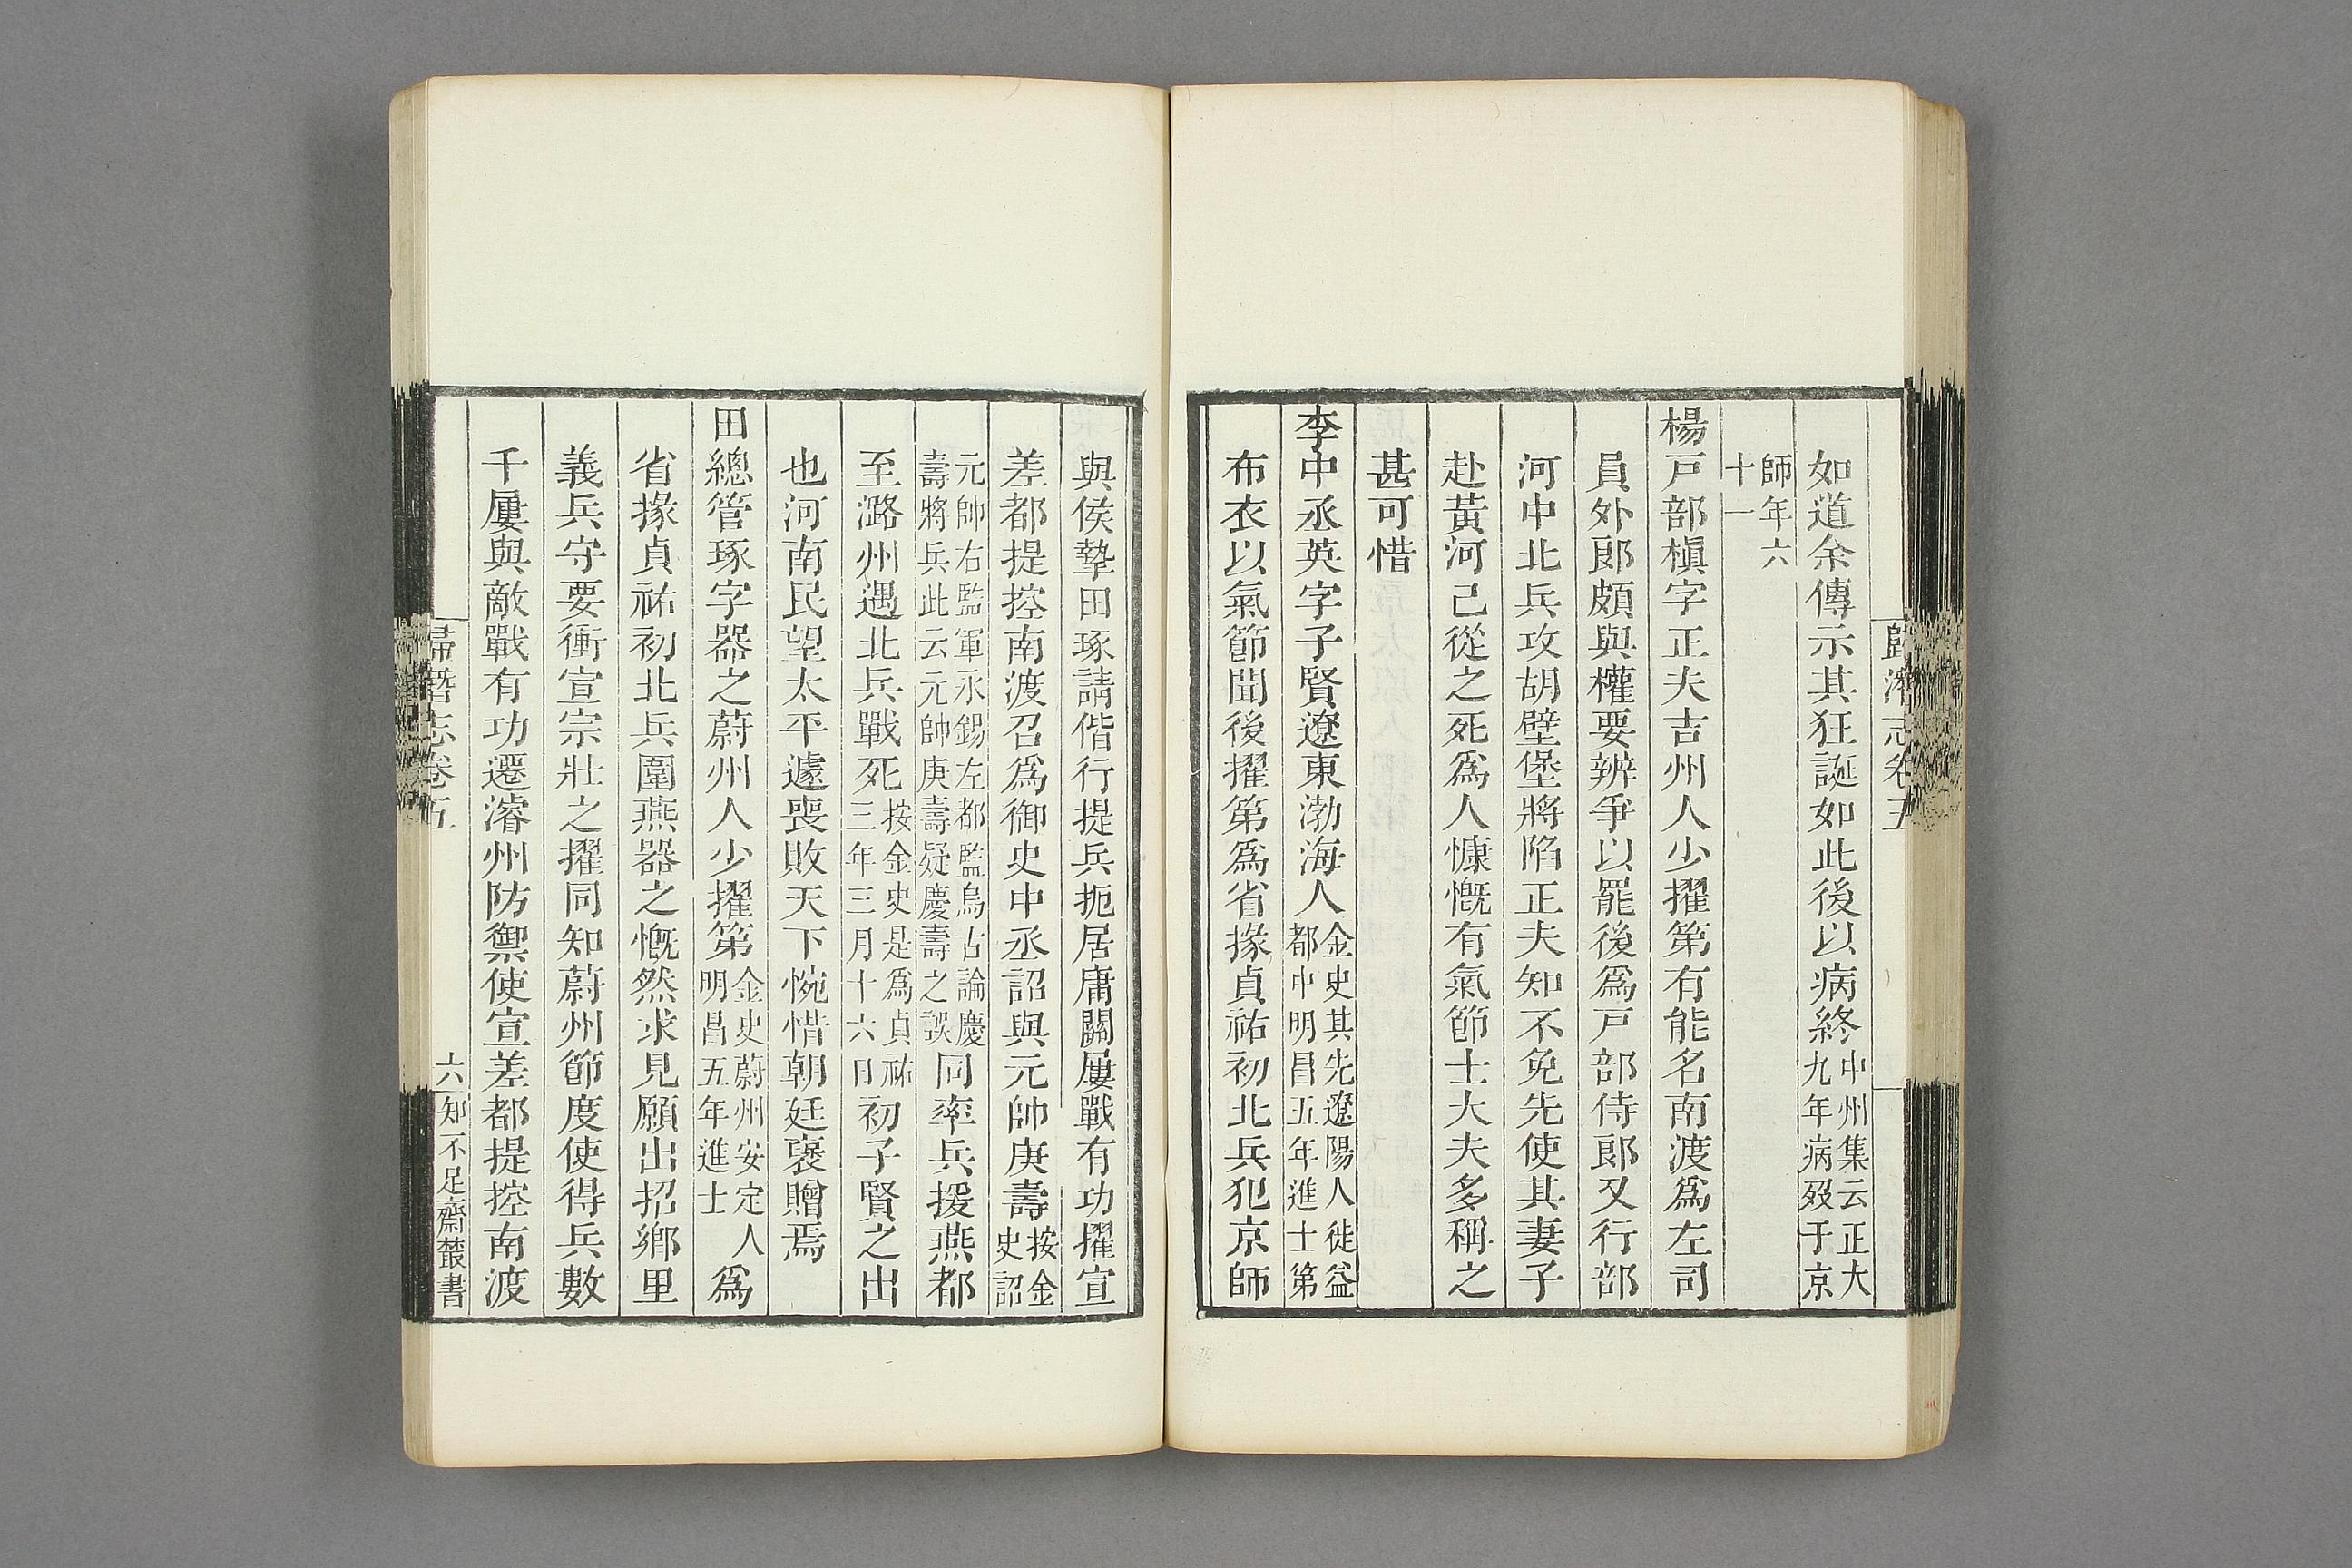 歸潛志卷五
如道余傳示其狂誕如此後以病終中州集云正大九年病歿于京
師年六十一
楊戸部楨字正夫吉州人少擢第有能名南渡爲左司
員外郎頗與權要辨爭以罷後爲戸部侍郎又行部
河中北兵攻胡壁堡將陷正夫知不免先使其妻子
赴黃河己從之死爲人慷慨有氣節士大夫多稱之
甚可惜
李中丞英字子賢遼東渤海人金史其先遼陽人徙益都中明昌五年進士第
布衣以氣節聞後擢第爲省掾貞祐初北兵犯京師
與侯摯田琢請偕行提兵扼居庸關屢戰有功擢宣
差都提控南渡召爲御史中丞詔與元帥庚壽按金史詔
元帥右監軍永錫左都監烏古論慶壽將兵此云元帥庚壽疑慶壽之誤同率兵援燕都
至潞州遇北兵戰死按金史是爲貞祐三年三月十六日初子賢之出
也河南民望太平遽喪敗天下惋惜朝廷褒贈焉
田總管琢字器之蔚州人少擢第金史蔚州安定人明昌五年進士爲
省掾貞祐初北兵圍燕器之慨然求見願出招鄉里
義兵守要衝宣宗壯之擢同知蔚州節度使得兵數
千屢與敵戰有功遷濬州防禦使宣差都提控南渡
歸潛志卷五
六
知不足齋叢書